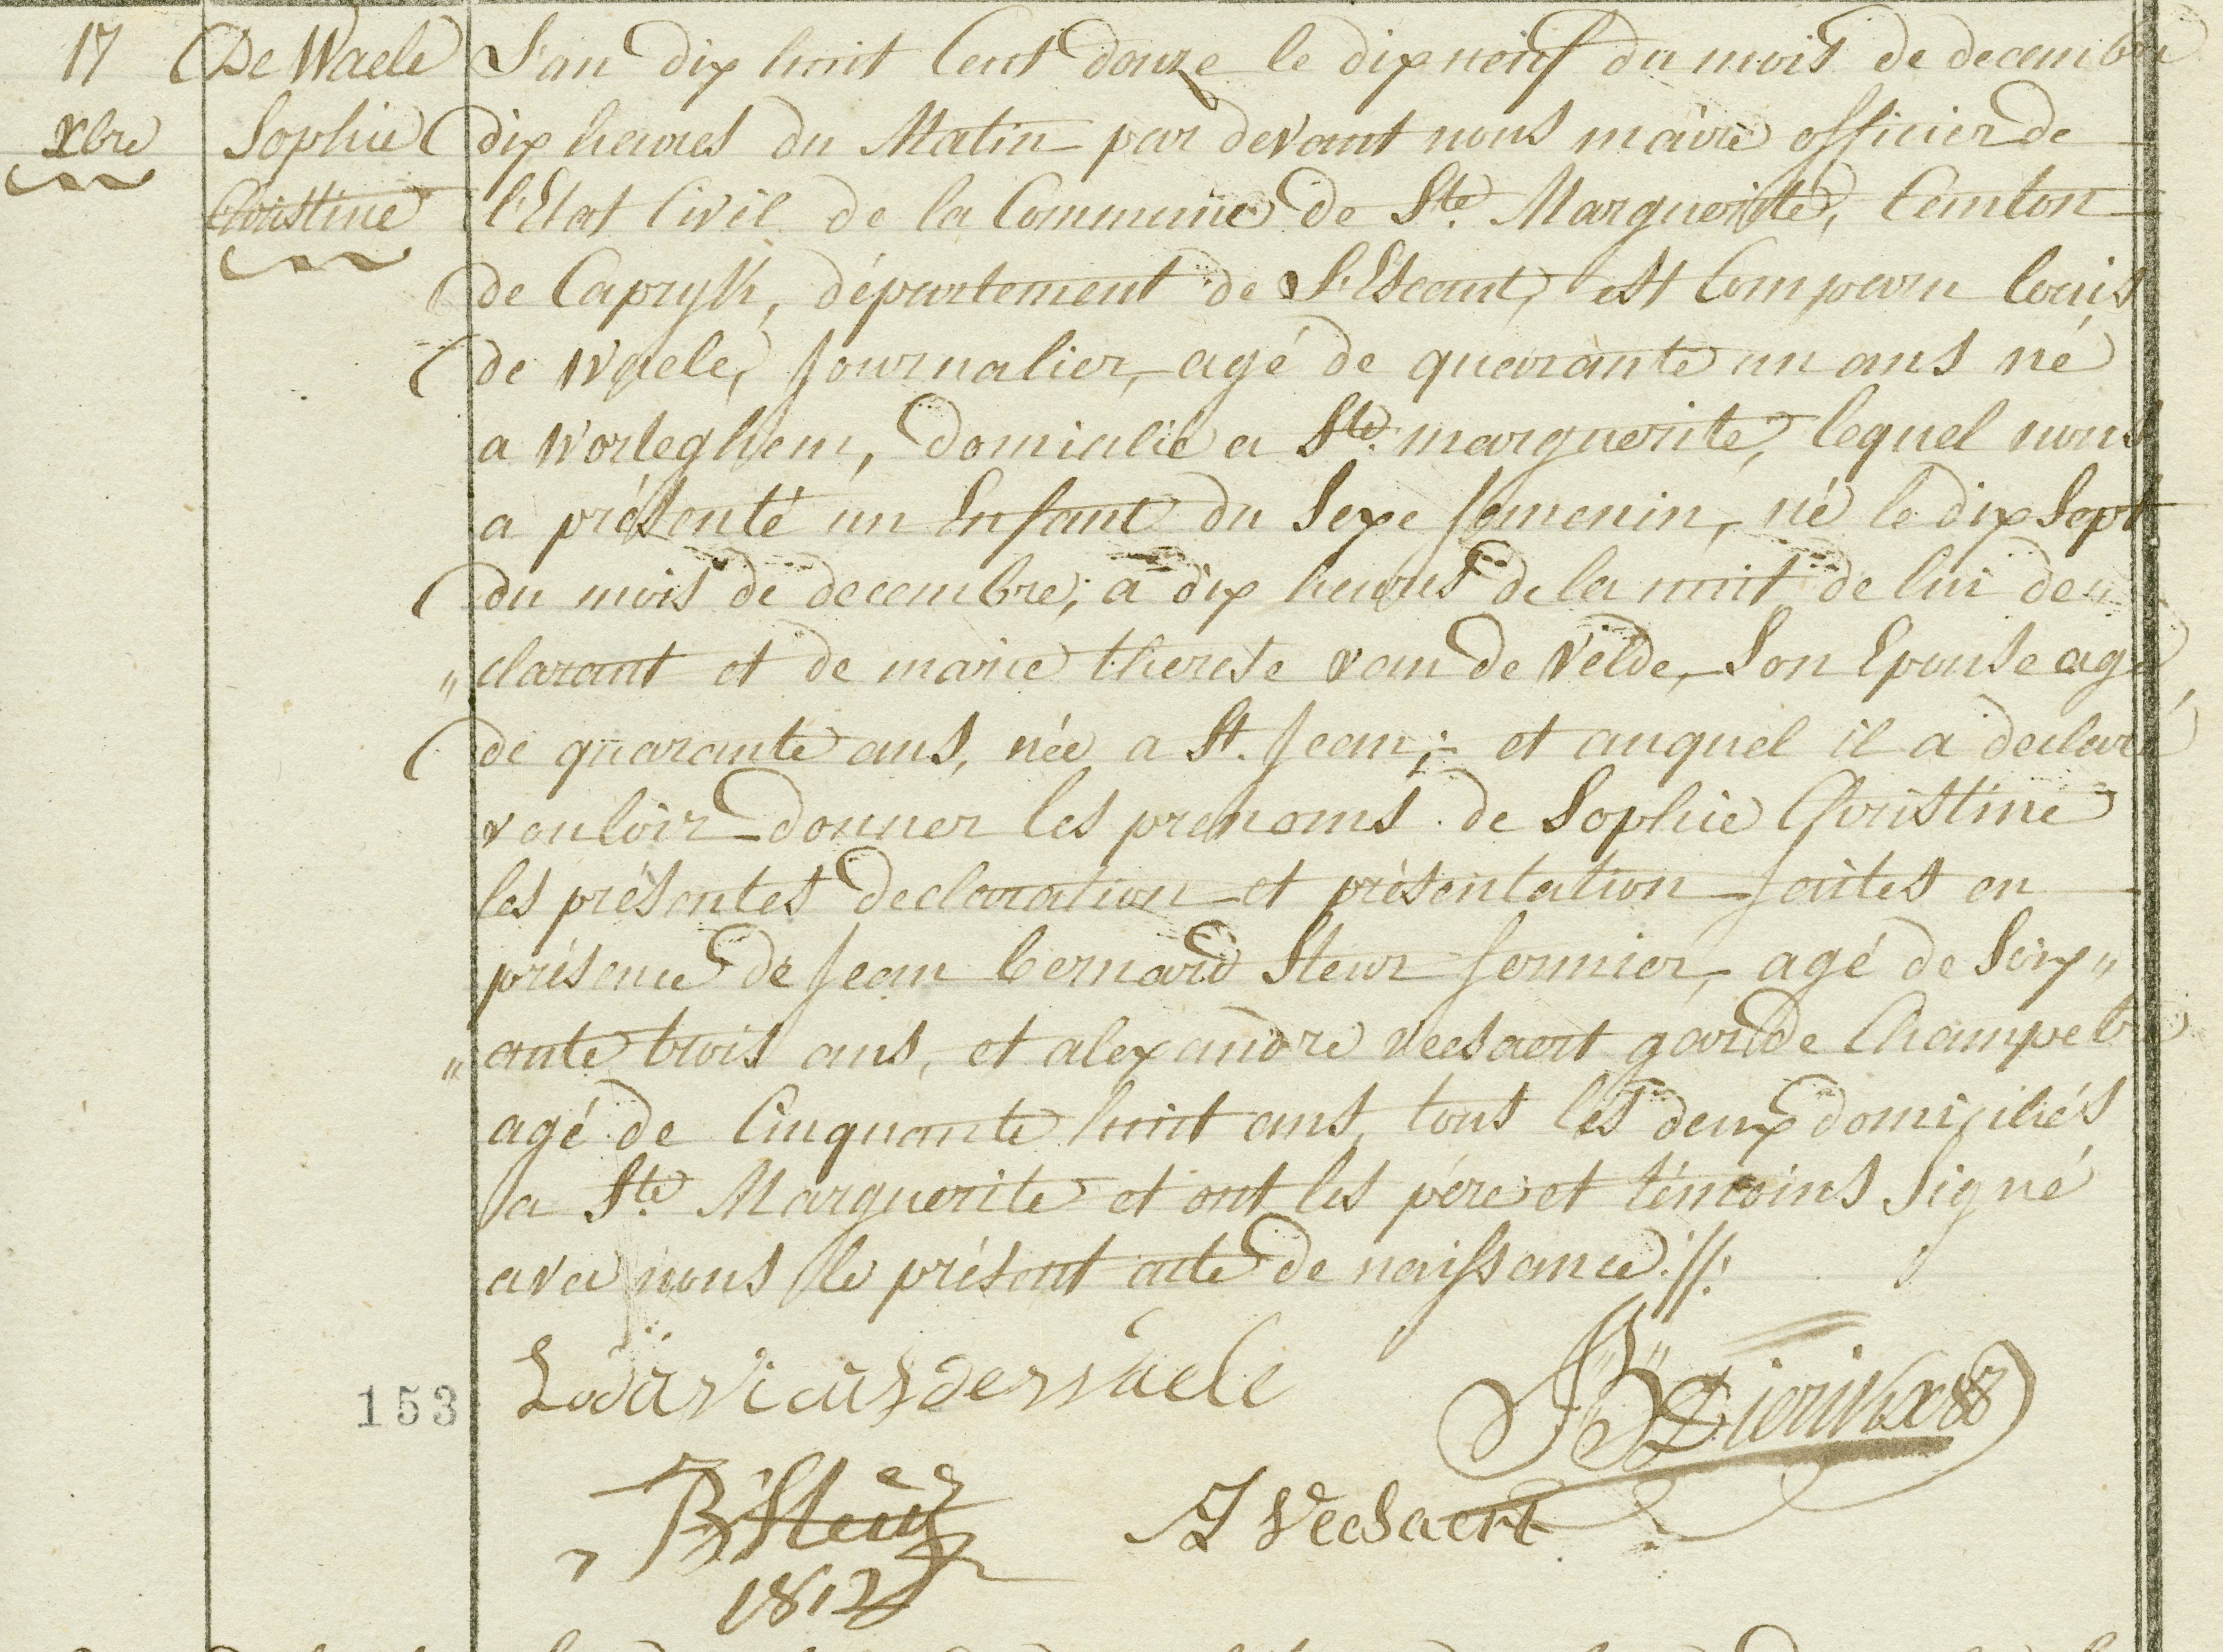 17
xbre
De Waele
Sophie
Christine
L'an dix huit Cent douze le dix neuf du mois de decembre
dix heures du Matin par devant nous maire officier de
l'Etat Civil de la Commune de Ste. Marguerite, Canton
de Capryk, département de L'Escaut, est Comparu louis
de Waele, journalier, agé de quarante un ans né
a Worteghem, domicilié a Ste. marguerite, lequel nous
a présenté un Enfant du Sexe femenin, né le dix Sept
du mois de decembre, a dix heures de la nuit de lui de„
„clarant et de marie therese van de Velde, Son Epouse agé
de quarante ans, née a St. Jean; et auquel il a declaré
vouloir donner les prenoms de Sophie Christine
les présentes declaration et présentation faites en
présence de Jean bernard Steur fermier, agé de Soix„
„ante trois ans, et alexandre veesaert garde Champetre
agé de Cinquante huit ans, tous les deux domiciliés
a Ste. Marguerite et ont les pére et témoins Signé
avec nous le présent acte de naissance.//.
Lodūvicūs de waele
153
B Steur
Veesaert
1812